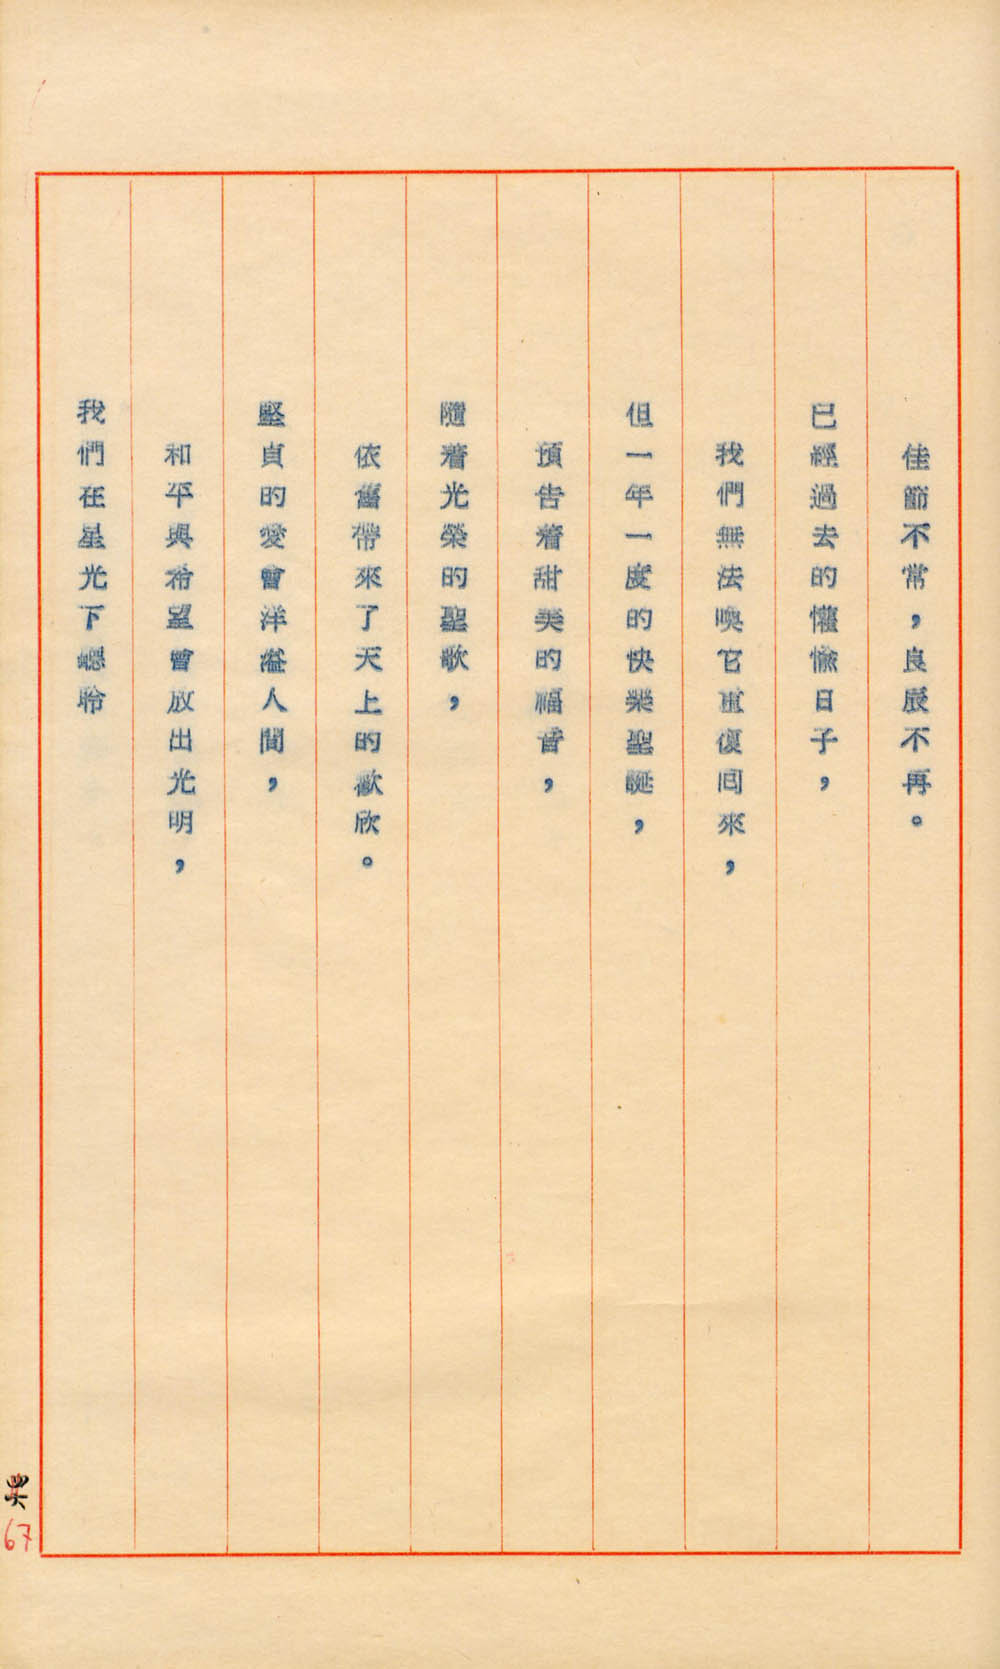 佳節不常，良辰不再。
已經過去的懽愉日子，
我們無法喚它重復囘來，
但一年一度的快樂聖誕，
預告着甜美的福音，
隨着光榮的聖歌，
依舊帶來了天上的歡欣。
堅貞的愛會洋溢人間，
和平與希望會放出光明，
我們在星光下聼聆
67